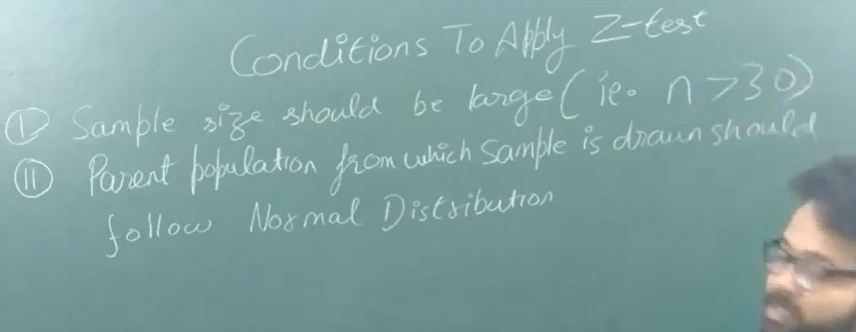 Conditions To Apply Z-test
(I) Sample size should be large (ie. n > 30)
(II) Parent population from which sample is drawn should
follow Normal Distribution